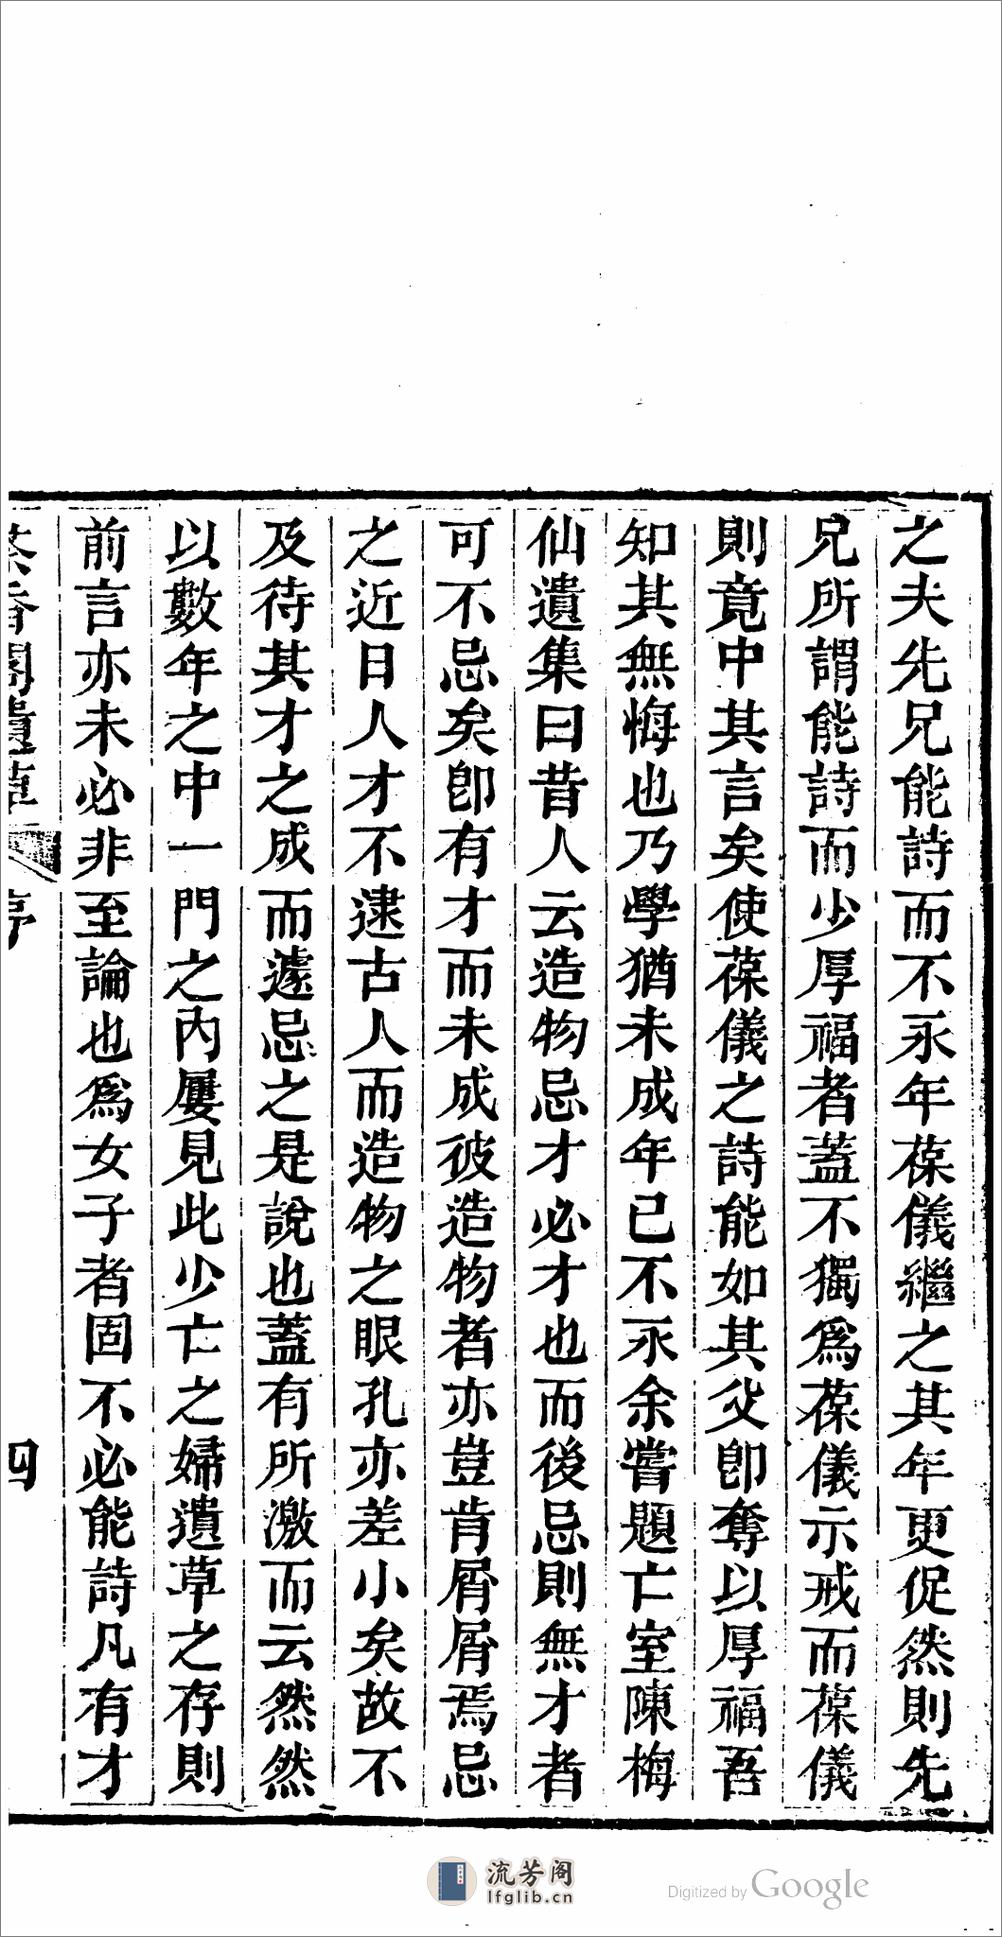 之夫先兄能詩而不永年葆儀繼之其年更促然則先
兄所謂能詩而少厚福者蓋不獨爲葆儀示戒而葆儀
則竟中其言矣使葆儀之詩能如其父卽奪以厚福吾
知其無悔也乃學猶未成年已不永余嘗題亡室陳梅
仙遺集曰昔人云造物忌才必才也而後忌則無才者
可不忌矣卽有才而未成彼造物者亦豈肯屑屑焉忌
之近日人才不逮古人而造物之眼孔亦差小矣故不
及待其才之成而遽忌之是說也蓋有所激而云然然
以數年之中一門之內屢見此少亡之婦遺草之存則
前言亦未必非至論也爲女子者固不必能詩凡有才
香閣遺草 序 四
流芳阁
lfglib.cn
Digitized by Google